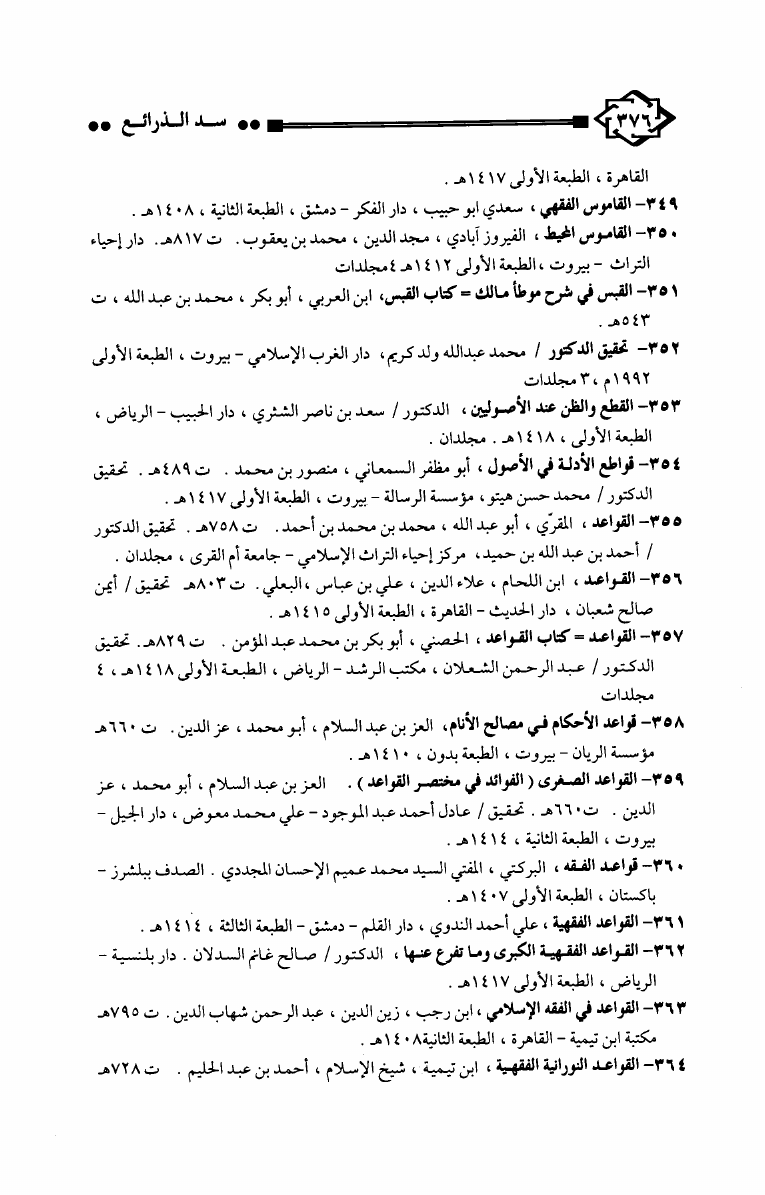 ٣٧٦ •• ســد الـذرائـع ••
القاهرة ، الطبعة الأولى ١٤١٧هـ .
٣٤٩- القاموس الفقهي ، سعدي ابو حبيب ، دار الفكر - دمشق ، الطبعة الثانية ، ١٤٠٨هـ .
٣٥٠- القاموس المحيط ، الفيروز آبادي ، مجد الدين ، محمد بن يعقوب . ت ٨١٧هـ. دار إحياء
التراث - بيروت ، الطبعة الأولى ١٤١٢هـ ٤ مجلدات
٣٥١- القبس في شرح موطأ مالك = كتاب القبس، ابن العربي ، أبو بكر ، محمد بن عبد الله ، ت
٥٤٣هـ .
٣٥٢- تحقيق الدكتور / محمد عبدالله ولد كريم، دار الغرب الإسلامي - بيروت ، الطبعة الأولى
١٩٩٢م ، ٣ مجلدات
٣٥٣- القطع والظن عند الأصوليين ، الدكتور / سعد بن ناصر الشثري ، دار الحبيب - الرياض ،
الطبعة الأولى ، ١٤١٨هـ . مجلدان .
٣٥٤- قواطع الأدلة في الأصول ، أبو مظفر السمعاني ، منصور بن محمد . ت ٤٨٩هـ . تحقيق
الدكتور / محمد حسن هيتو ، مؤسسة الرسالة - بيروت ، الطبعة الأولى ١٤١٧هـ .
٣٥٥- القواعد ، المقرّي ، أبو عبد الله ، محمد بن محمد بن أحمد. ت ٧٥٨هـ . تحقيق الدكتور
/ أحمد بن عبد الله بن حميد، مركز إحياء التراث الإسلامي - جامعة أم القرى ، مجلدان .
٣٥٦- القواعد ، ابن اللحام ، علاء الدين ، علي بن عباس ، البعلي . ت ٨٠٣هـ تحقيق / أيمن
صالح شعبان ، دار الحديث - القاهرة ، الطبعة الأولى ١٤١٥هـ .
٣٥٧- القواعد = كتاب القواعد ، الحصني ، أبو بكر بن محمد عبد المؤمن . ت ٨٢٩هـ. تحقيق
الدكتور / عبد الرحمن الشعلان ، مكتب الرشد - الرياض ، الطبعة الأولى ١٤١٨هـ ، ٤
مجلدات
٣٥٨- قواعد الأحكام في مصالح الأنام، العز بن عبد السلام ، أبو محمد ، عز الدين . ت ٦٦٠هـ
مؤسسة الريان - بيروت ، الطبعة بدون ، ١٤١٠هـ .
٣٥٩- القواعد الصغرى ( الفوائد في مختصر القواعد ) . العز بن عبد السلام ، أبو محمد ، عز
الدين . ت ٦٦٠هـ . تحقيق / عادل أحمد عبد الموجود - علي محمد معوض ، دار الجيل -
بيروت ، الطبعة الثانية ، ١٤١٤هـ .
٣٦٠- قواعد الفقه ، البركتي ، المفتي السيد محمد عميم الإحسان المجددي . الصدف ببلشرز -
باكستان ، الطبعة الأولى ١٤٠٧هـ .
٣٦١- القواعد الفقهية ، علي أحمد الندوي ، دار القلم - دمشق - الطبعة الثالثة ، ١٤١٤هـ .
٣٦٢- القواعد الفقهية الكبرى وما تفرع عنها ، الدكتور / صالح غانم السدلان . دار بلنسية -
الرياض ، الطبعة الأولى ١٤١٧هـ .
٣٦٣- القواعد في الفقه الإسلامي ، ابن رجب ، زين الدين ، عبد الرحمن شهاب الدين . ت ٧٩٥هـ
مكتبة ابن تيمية - القاهرة ، الطبعة الثانية ١٤٠٨هـ .
٣٦٤- القواعد النورانية الفقهية ، ابن تيمية ، شيخ الإسلام ، أحمد بن عبد الحليم . ت ٧٢٨هـ